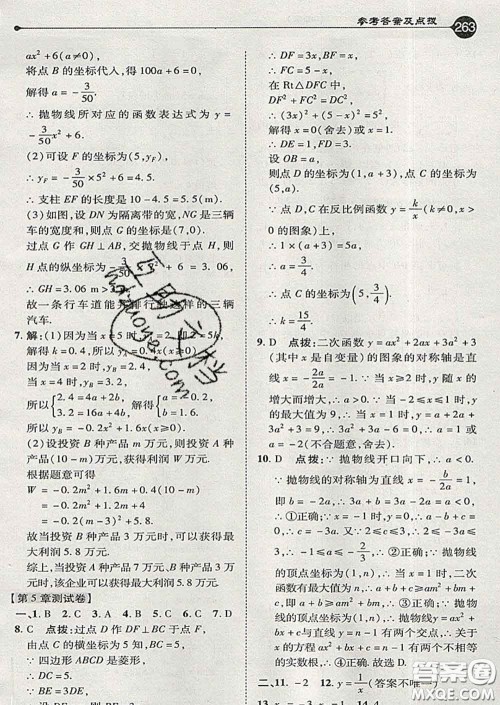 参考答案及点拨 263
ax²+6(a≠0),
将点 B 的坐标代入,得 100a+6=0,
解得 a=-3/50.
∴ 抛物线所对应的函数表达式为 y=
-3/50x²+6.
(2)可设 F 的坐标为(5,yF),
∴ yF=-3/50×5²+6=4.5.
∴ 支柱 EF 的长度是 10-4.5=5.5(m).
(3)如图,设 DN 为隔离带的宽,NG 是三辆
车的宽度和,则点 G 的坐标是(7,0).
过点 G 作 GH⊥AB,交抛物线于点 H,则
H 点的纵坐标为-3/50×7²+6=3.06,
∴ GH=3.06 m>3 m.
故一条行车道能并排行驶这样的三辆
汽车.
7. 解:(1)因为当 x=5 时,
所以 2=5k,解得 k=0.4,所以 yA=0.4x(x≥0).
因为当 x=2 时,yB=2.4;
当 x=4 时,yB=3.2,
所以{2.4=4a+2b, 3.2=16a+4b, 解得{a=-0.2, b=1.6.
所以 yB=-0.2x²+1.6x(x≥0).
(2)设投资 B 种产品 m 万元,则投资 A 种
产品(10-m)万元,获得利润 W 万元.
根据题意可得
W=-0.2m²+1.6m+0.4(10-m)
=-0.2m²+1.2m+4
=-0.2(m-3)²+5.8.
故当投资 B 种产品 3 万元时,可以获得最
大利润 5.8 万元.
综上,当投资 A 种产品 7 万元,B 种产品 3
万元时,该企业可以获得最大利润 5.8 万元.
【第 5 章测试卷】
一、1. B 2. C 3. A 4. B 5. C 6. C 7. D
8. C 点拨:过点 D 作 DF⊥BC 于点 F,
由点 C 的横坐标为 5 知 BC=5.
∵ 四边形 ABCD 是菱形,
∴ DC=BC=5.
∴ DF=3x,BF=x,
∴ FC=5-x.
在 Rt△DFC 中,
DF²+FC²=DC²,
∴ (3x)²+(5-x)²=5².
解得 x=0(舍去)或 x=1.
∴ DE=1,FD=3.
设 OB=a,
则点 D 的坐标为(1,a+3),点 C 的坐标为
(5,a).
∵ 点 D,C 在反比例函数 y=k/x(k≠0,
x>0)的图象上,
∴ 1×(a+3)=5a,
∴ a=3/4.
∴ 点 C 的坐标为(5,3/4).
∴ k=15/4.
9. D 点拨:二次函数 y=ax²+2ax+3a²+3
(其中 x 是自变量)的图象的对称轴是直
线 x=-2a/2a=-1. ∵ 当 x≥2 时,y 随 x
的增大而增大,∴ a>0. ∵ -2≤x≤1 时,y
的最大值为 9,∴ 当 x=1 时,y=a+2a+
3a²+3=9,∴ 3a²+3a-6=0,∴ a=1 或
a=-2(舍去).
10. D 点拨:∵ 抛物线开口向下,∴ a<0.
∵ 抛物线的对称轴为直线 x=-b/2a=1,
即 b=-2a,∴ 3a+b=3a-2a=a<0,
∴ ①正确;∵ 2≤c≤3,c=-3a,∴ 2≤
-3a≤3,∴ -1≤a≤-2/3,∴ ②正确;
∵ 抛物线的顶点坐标为(1,n),∴ 当
x=1 时,
二次函数有最大值 n,∴ a+b+c≥am²+
bm+c,即 a+b≥am²+bm,∴ ③正确;
∵ 抛物线的顶点坐标为(1,n),∴ 抛物线
y=ax²+bx+c 与直线 y=n-1 有两个
交点,∴ 关于 x 的方程 ax²+bx+c=n-1
有两个不相等的实数根,∴ ④正确.故选 D.
二、11. -2 12. y=1/x(答案不唯一)
答案圈
MXQE.COM